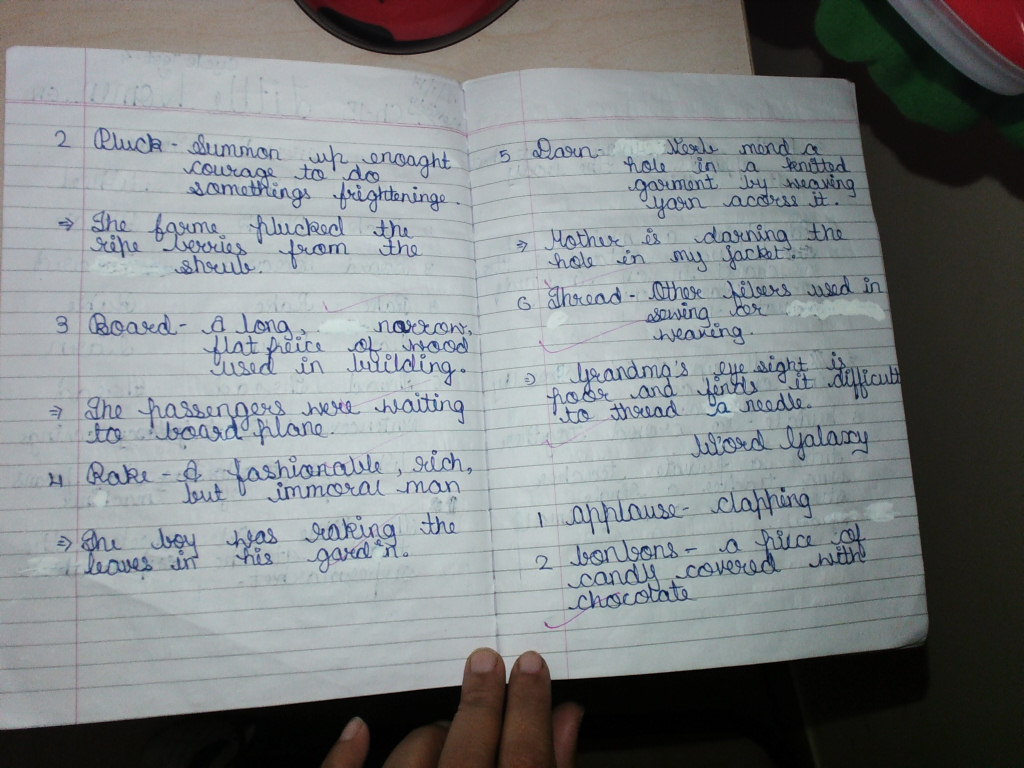 2 Pluck - Summon up enoaght
courage to do
somethings frighteninge.
⇒ The farme plucked the
ripe berries from the
shrub.
3 Board - A long, narrow,
flat peice of wood
used in building.
⇒ The passengers were waiting
to board plane.
4 Rake - A fashionable, rich,
but immoral man
⇒ The boy was raking the
leaves in his gard'n.
5 Darn - Verb mend a
hole in a knitted
garment by weaving
yarn accrse it.
⇒ Mother is darning the
hole in my jacket.
6 Thread - Other fibers used in
sewing or
weaking.
⇒ Grandma's eye sight is
poor and finds it difficult
to thread a needle.
Word Galaxy
1 applause - clapping
2 bonbons - a piece of
candy covered with
chocolate